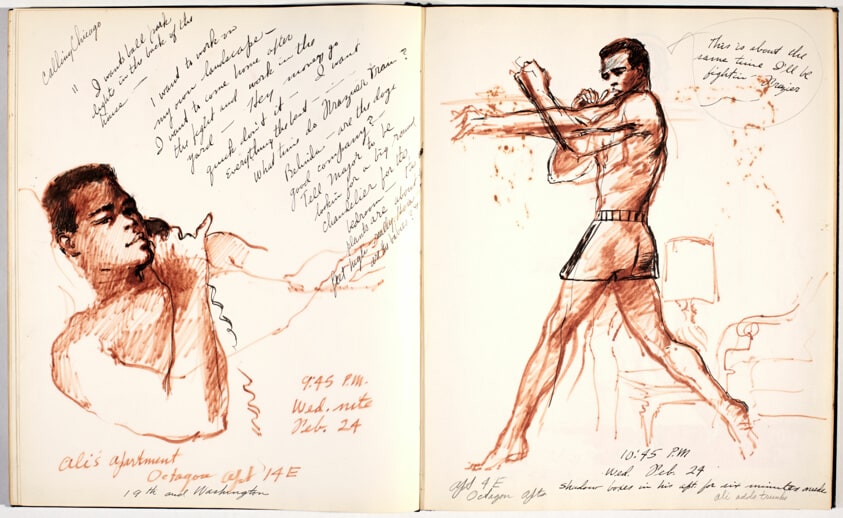 Calling Chicago
" I want ball park
lights in the back of the
house —
I want to work on
my own landscape —
I want to come home after
the fight and work in the
yard — Hey money go
quick don't it — I want
everything the best —
What time do Frazier train?
Belinda — are the dogs
good company? —
Tell Major to be
lookin for a big round
chandelier for the
bedroom — The
planks are about
feet high
9:45 P.M.
Wed. nite
Feb. 24
Ali's apartment
Octagon Apt 14E
19th and Washington
This is about the
same time I'll be
fightin — Frazier
10:45 P.M
Wed Feb. 24
apt 4E
Octagon Apts
shadow boxes in his apt for six minutes nude
ali adds trunks